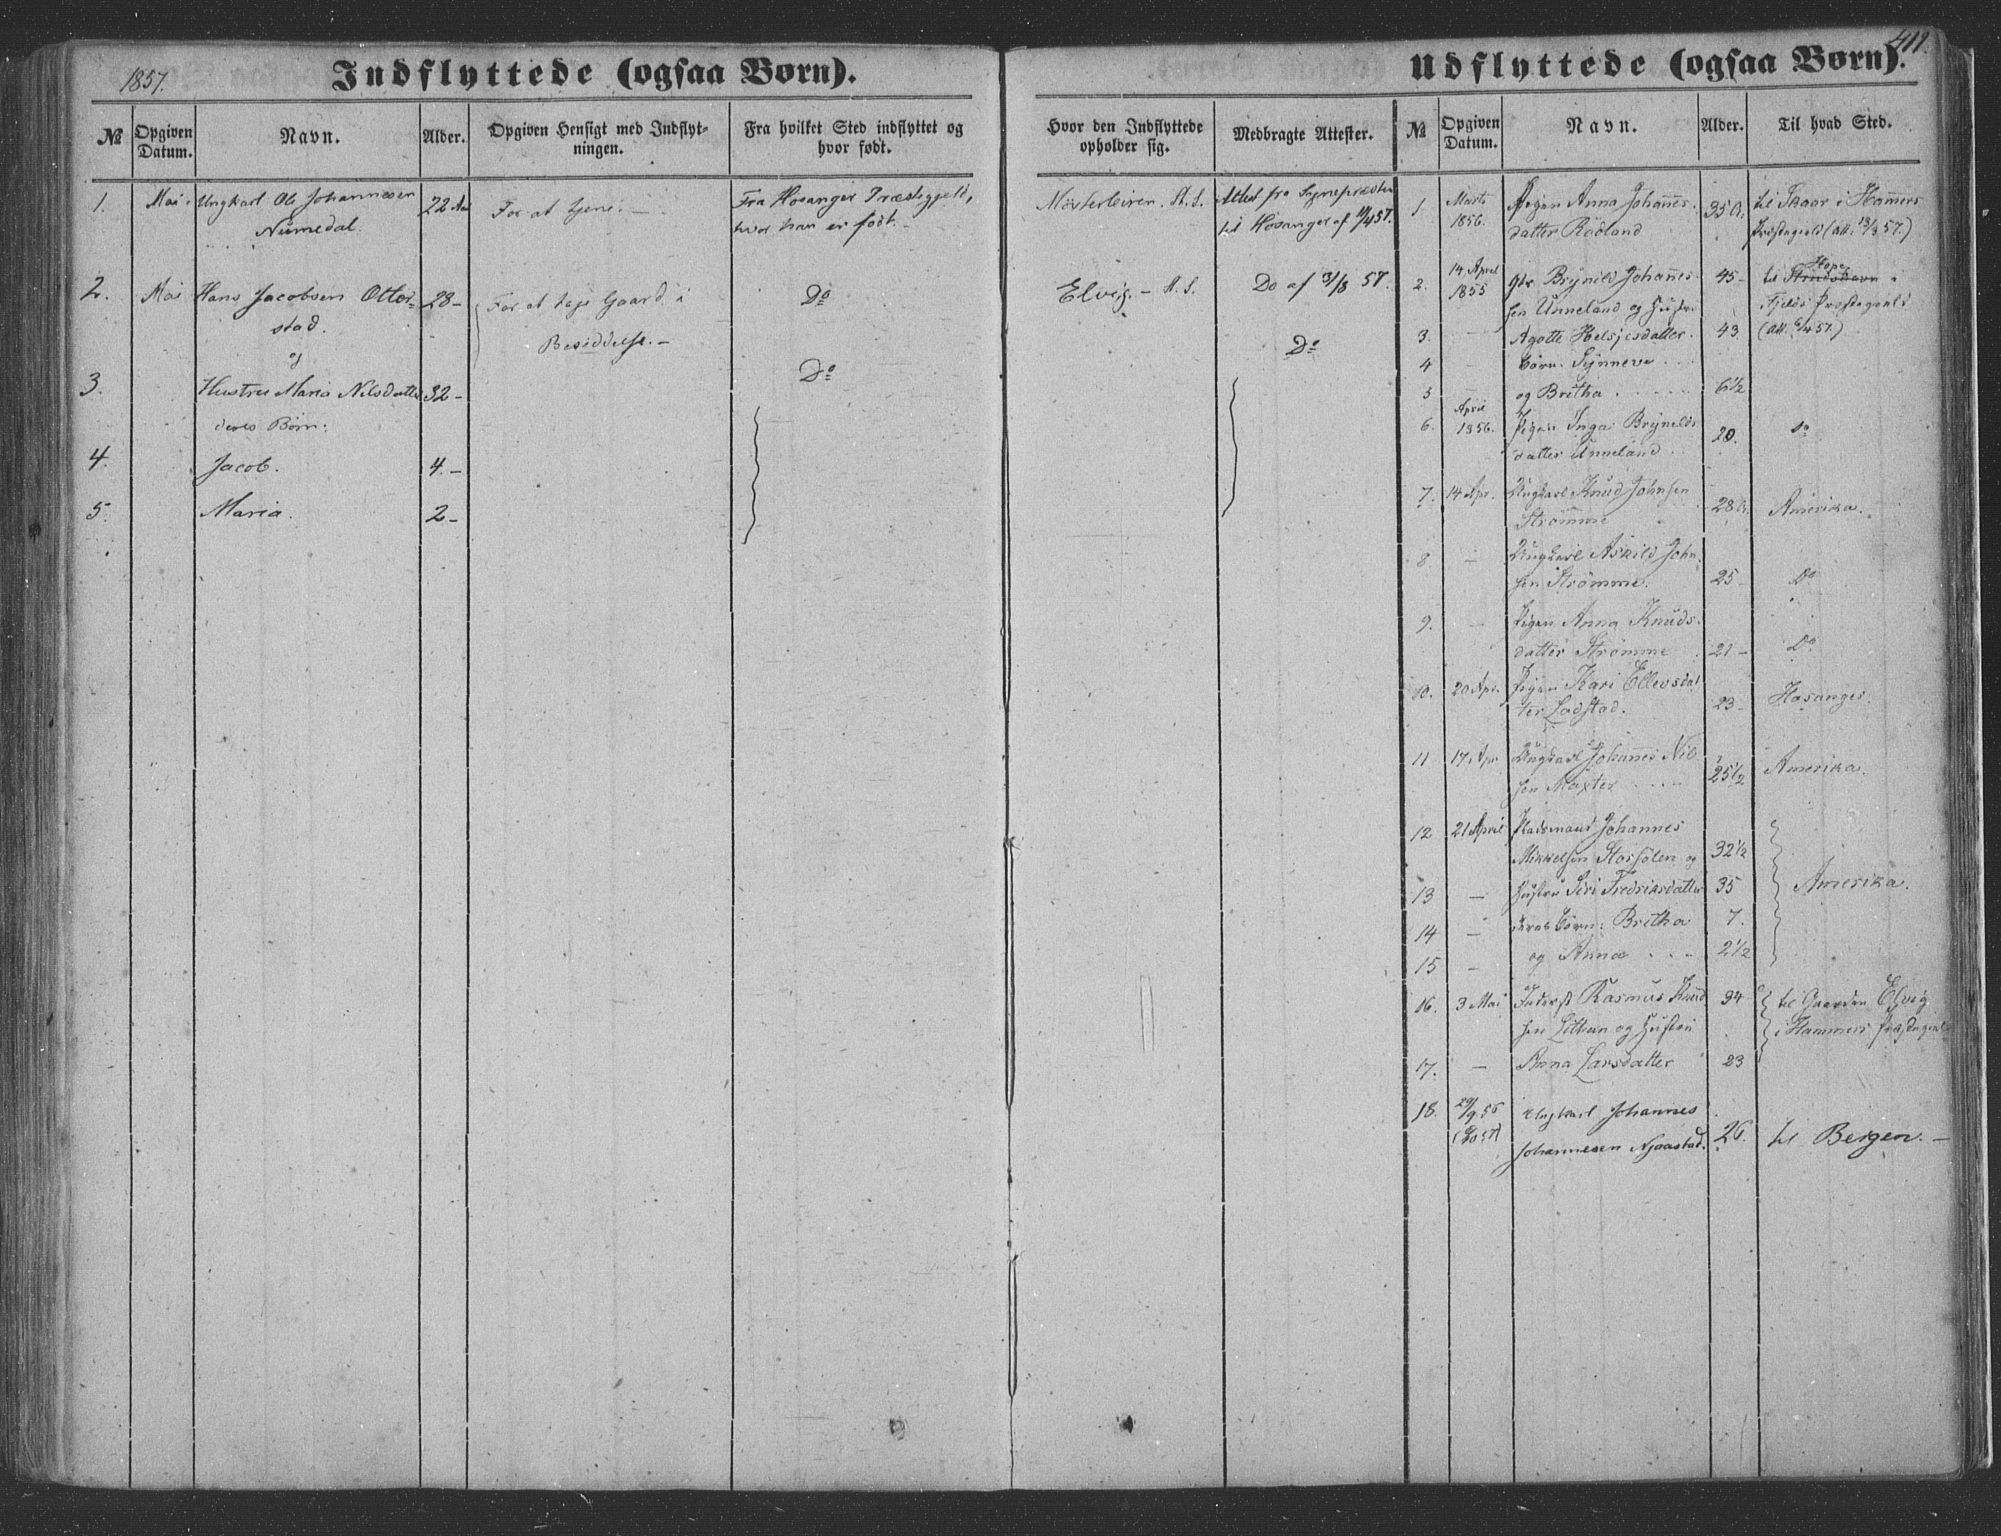 1857.
Indflyttede (ogsaa Børn).
№
Opgiven Datum.
Navn.
Alder.
Opgiven Hensigt med Indflyt-
ningen.
Fra hvilket Sted indflyttet og
hvor født.
1. Mai Ungkarl Ole Johannesen 22 Aar For at tjene. — Fra Hosanger Præstegjeld,
Numedal. hvor han er født. —
2. Mai Hans Jacobsen Otter- 28 – For at tage Gaard i Do
stad. Besiddelse. —
og
3. Hustru Maria Nilsdatter 32 – Do
deres Børn:
4. Jacob. 4. –
5. Maria. 2 –
419.
Udflyttede (ogsaa Børn).
Hvor den Indflyttede
opholder sig.
Medbragte Attester.
№
Opgiven
Datum.
Navn.
Alder.
Til hvad Sted.
H. S. Attest fra Sognepræsten
til Hosanger af 57.
Elvig. – H. S. Do af 3/8 57.
Do
1 Marts Pigen Anna Johannes- 35 til Skaar i Hammers
1856. datter Rödland Præstegield (Att. 13/3 57.)
2. 14 April Brynild Johannes- 45 – til Hope i
1855 sen Unneland og Hustru Fjelds Præstegield
3. Agatte Helgesdatter. 43. (Att. 57.)
4 Børn: Synneve
5 og Britha 6 1/2
6. April Pigen Inga Brynilds- 20. do
1856. datter Unneland
7. 14 Apr. Ungkarl Knud Johnsen 28 Amerika.
Strömme
8 – Ungkarl Askild John- 25 – Do
sen Strömme.
9. – Pigen Anna Knuds- 21 – Do
datter Strömme
10. 20 Apr. Pigen Kari Ellevsdat- 23 – Hosanger.
ter Ladstad.
11 17 Apr Ungkarl Johannes Nil- 25 1/2 Amerika.
sen Moxter
12 21 April Pladsmand Johannes
Mikkelsen Storsölen og 32 1/2
13 – Hustru Siri Fredriksdatter 35 Amerika.
14 – deres Børn: Britha 7.
15 – og Anna 2 1/2
16. 3 Mai Inderst Rasmus Knud- 34 til Gaarden Elvig
sen Littun og Hustru i Hammers Præstegield
17. – Anna Larsdatter 23
18. 29/9 56 Ungkarl Johannes
Johannesen Njaastad. 26. til Bergen. —